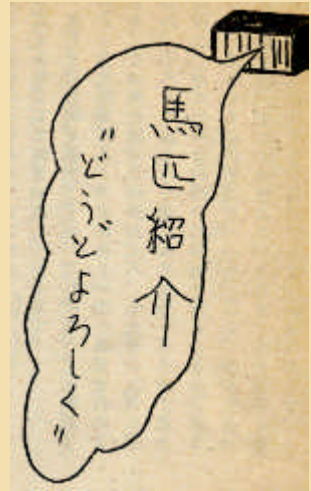 馬匹紹介
"どうぞよろしく"